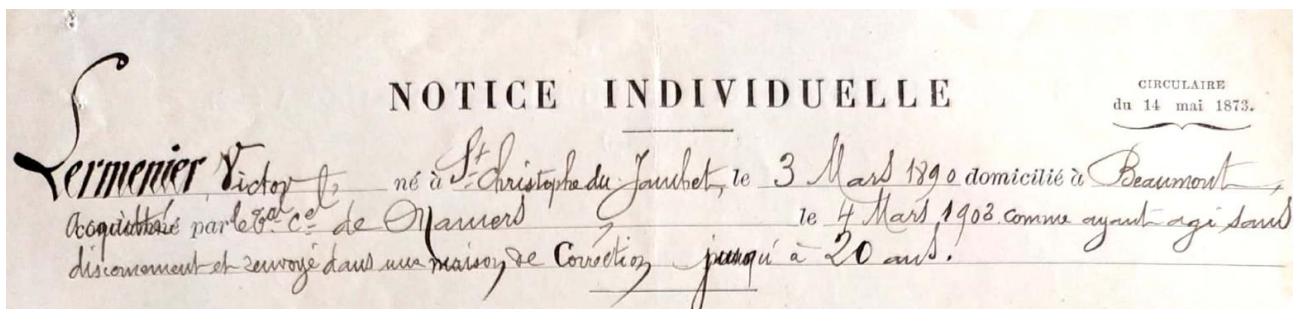 NOTICE INDIVIDUELLE
CIRCULAIRE
du 14 mai 1873.
Lermenier, Victor né à St Christophe du Jambet, le 3 Mars 1890 domicilié à Beaumont,
acquitté par le Bal Cel de Mamers le 4 Mars 1903 comme ayant agi sans
discernement et renvoyé dans une maison de Correction jusqu'à 20 ans.